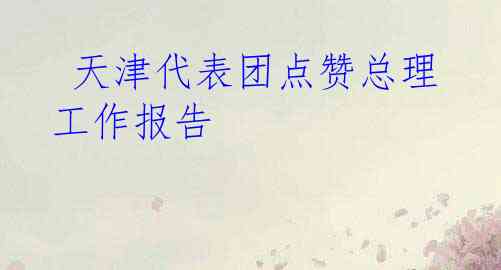 天津代表团点赞总理
工作报告